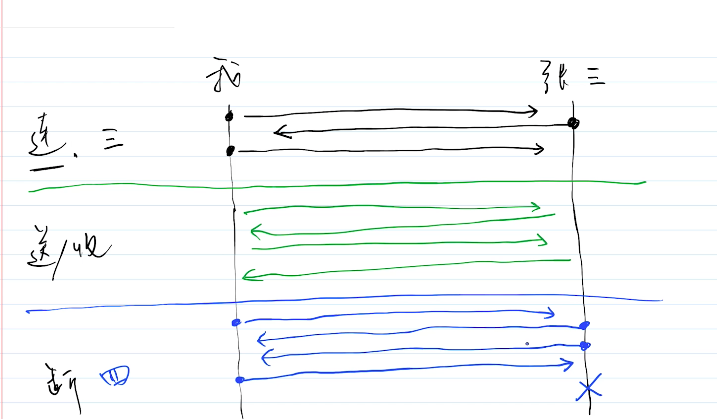 我 张三
连. 三
送/收
断 四